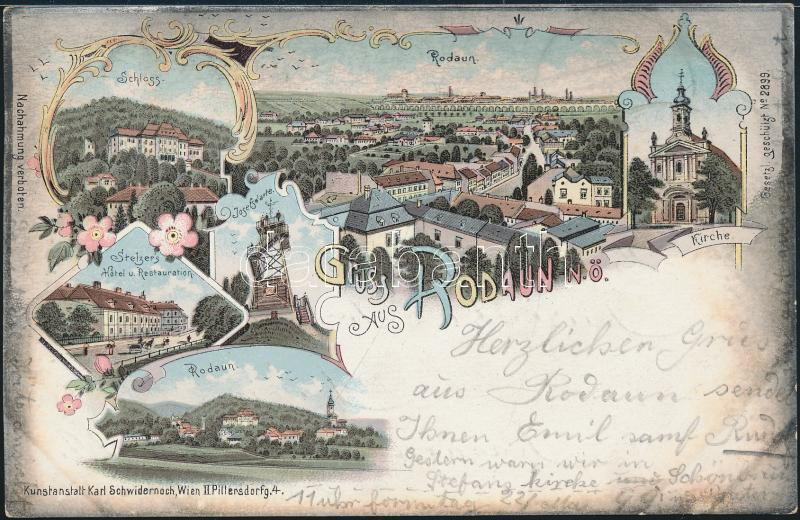 Schloss.
Rodaun.
Nachahmung verboten.
Gesetzl. geschützt No 2899.
Josefswarte.
Kirche
Stelzers
Hôtel u. Restauration
Gruss
aus
Rodaun N.Ö.
Rodaun
Herzlichen Gruss
aus Rodaun sendet
Ihnen Emil samt
Gestern waren wir in
Stefans kirche Schönbrunn
11 Uhr
Kunstanstalt Karl Schwidernoch, Wien II Pillersdorfg. 4.